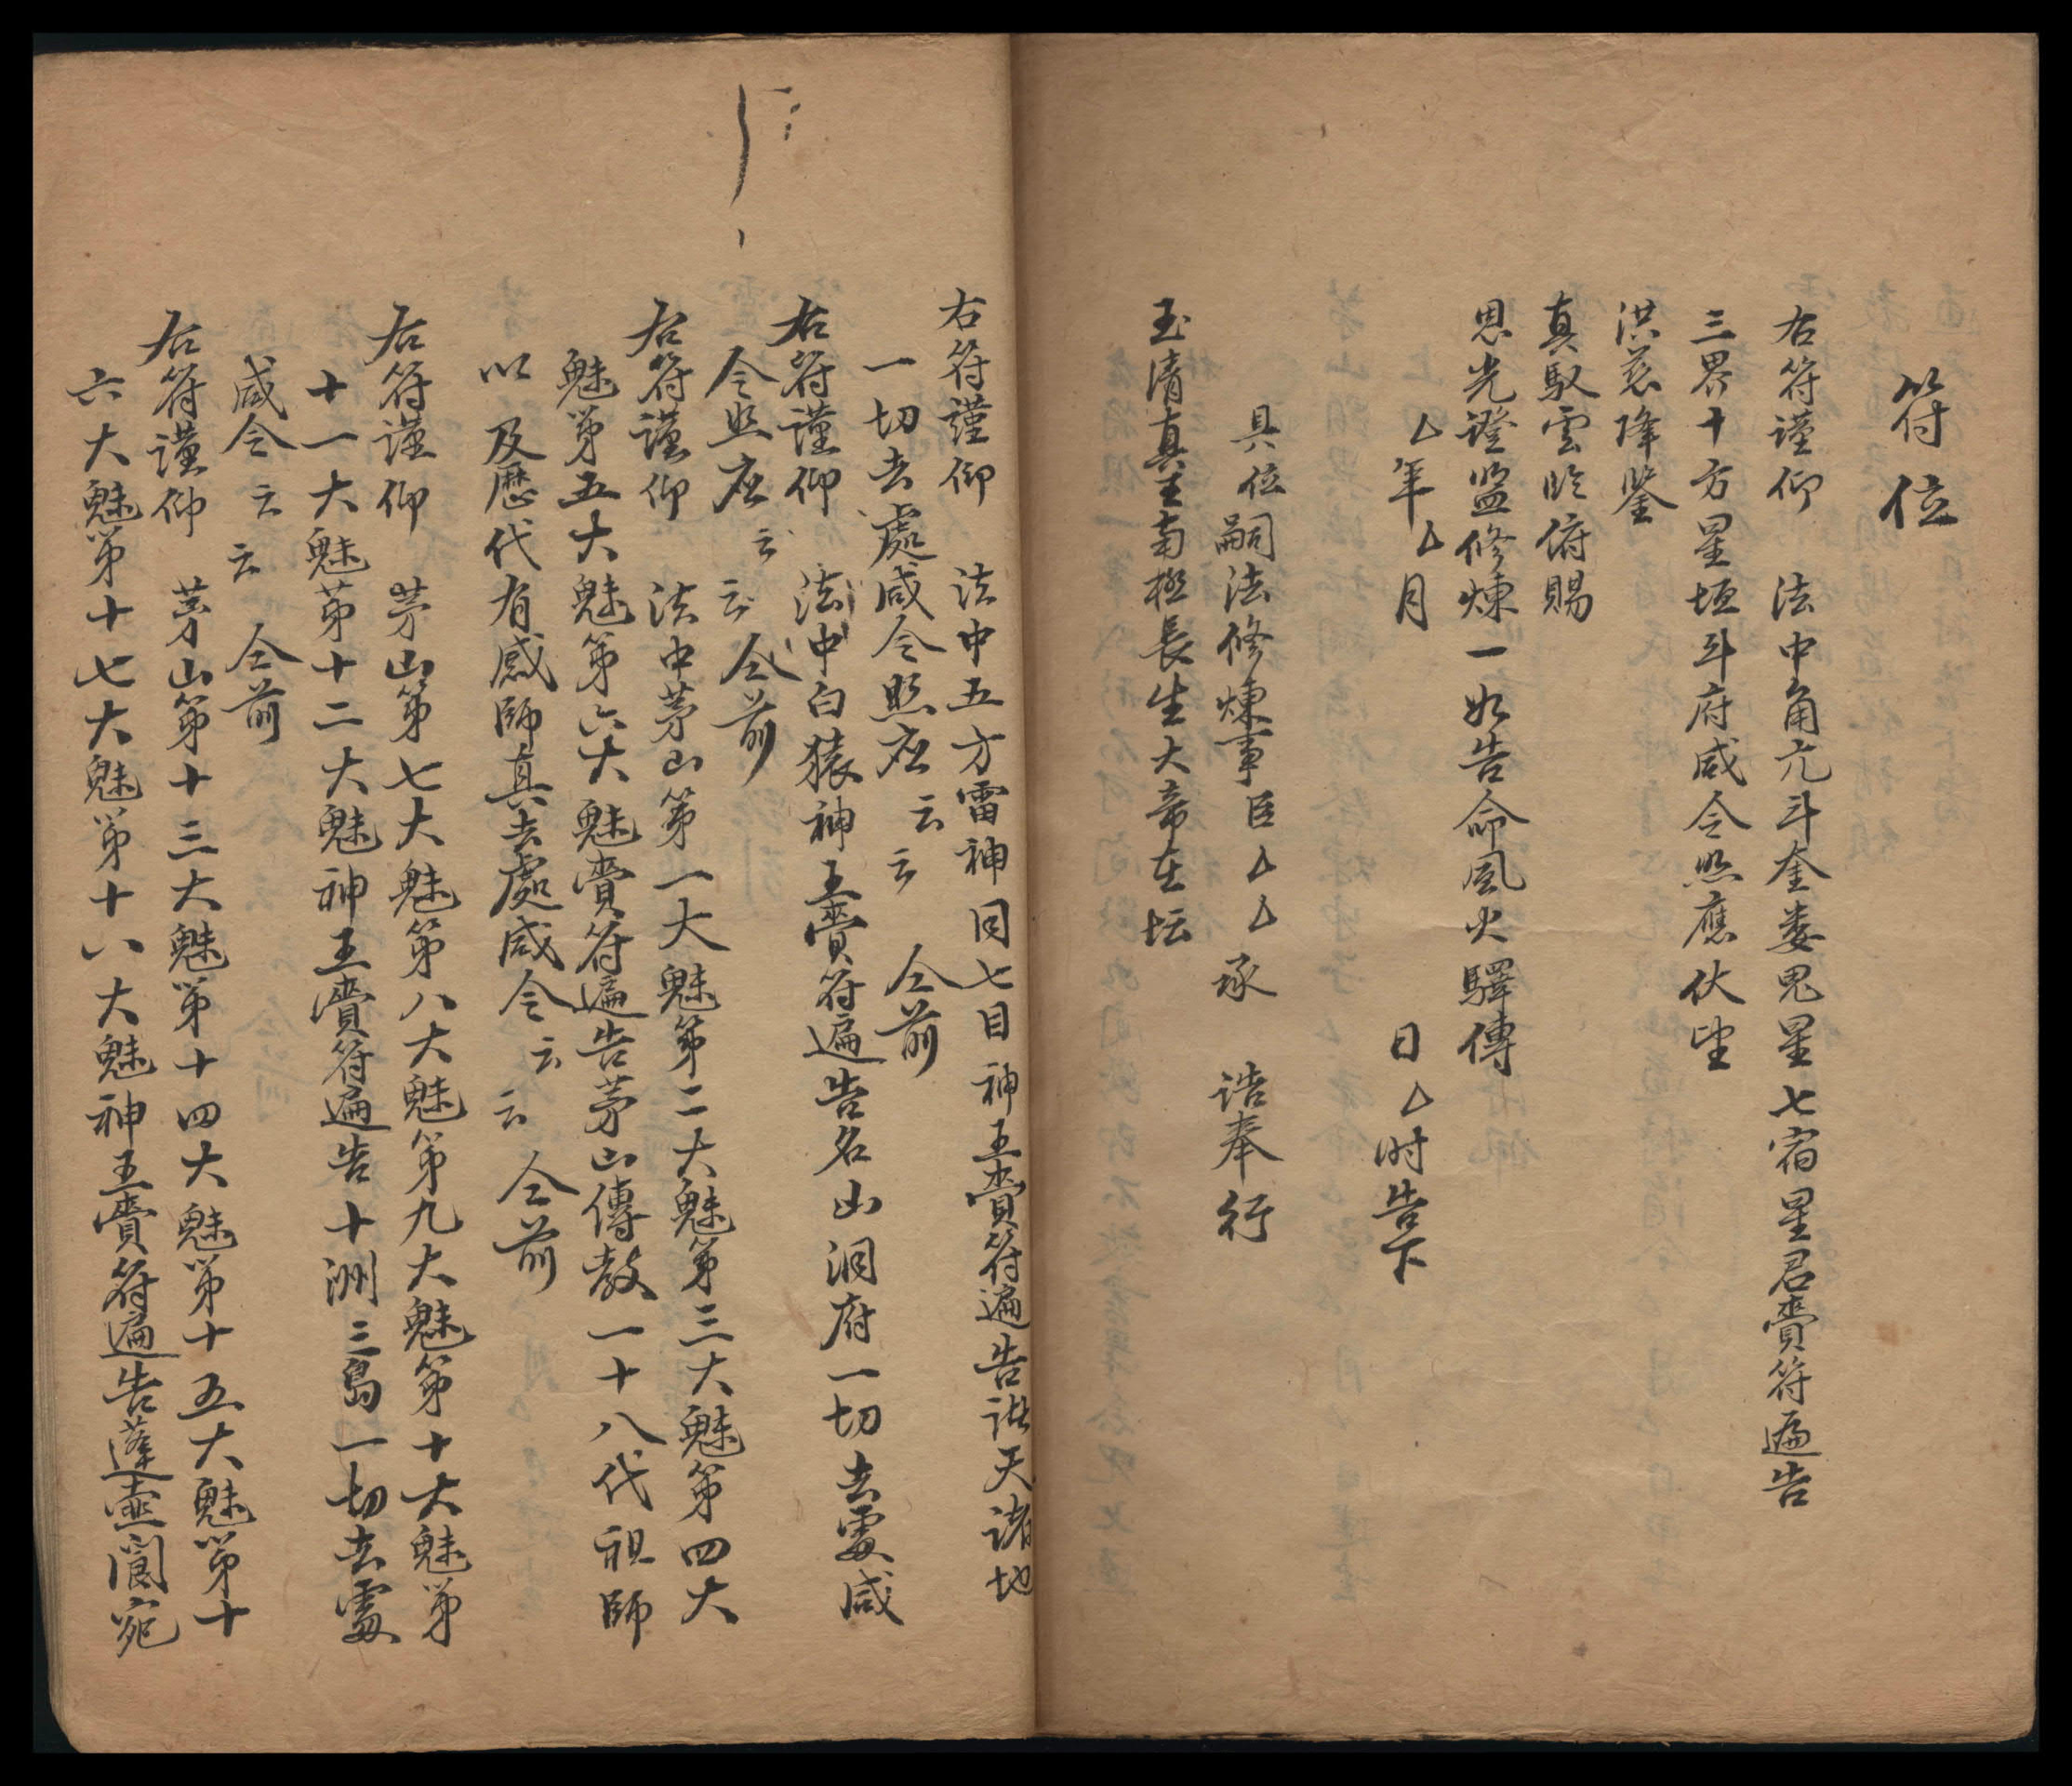 符位
右符謹仰 法中角亢斗奎婁鬼星七宿星君賫符遍告
三界十方星垣斗府咸令照應伏望
洪慈降鑒
真馭雲軿俯賜
恩光證监修煉一如告命風火驛傳
厶年厶月 日厶时告下
具位嗣法修煉事臣厶厶承 誥奉行
玉清真王南極長生大帝在坛
右符謹仰 法中五方雷神同七目神王賫符遍告諸天諸地
一切去處咸令照应云云 仝前
右符謹仰 法中白猿神王賫符遍告名山洞府一切去處咸
令照应云云仝前
右符謹仰 法中茅山第一大魅第二大魅第三大魅第四大
魅第五大魅第六大魅賫符遍告茅山傳教一十八代祖師
以及歷代有感師真去處咸令云云 仝前
右符謹仰 茅山第七大魅第八大魅第九大魅第十大魅第
十一大魅第十二大魅神王賫符遍告十洲三島一切去處
咸令云云 仝前
右符謹仰 茅山第十三大魅第十四大魅第十五大魅第十
六大魅第十七大魅第十八大魅神王賫符遍告蓬壺閬宛